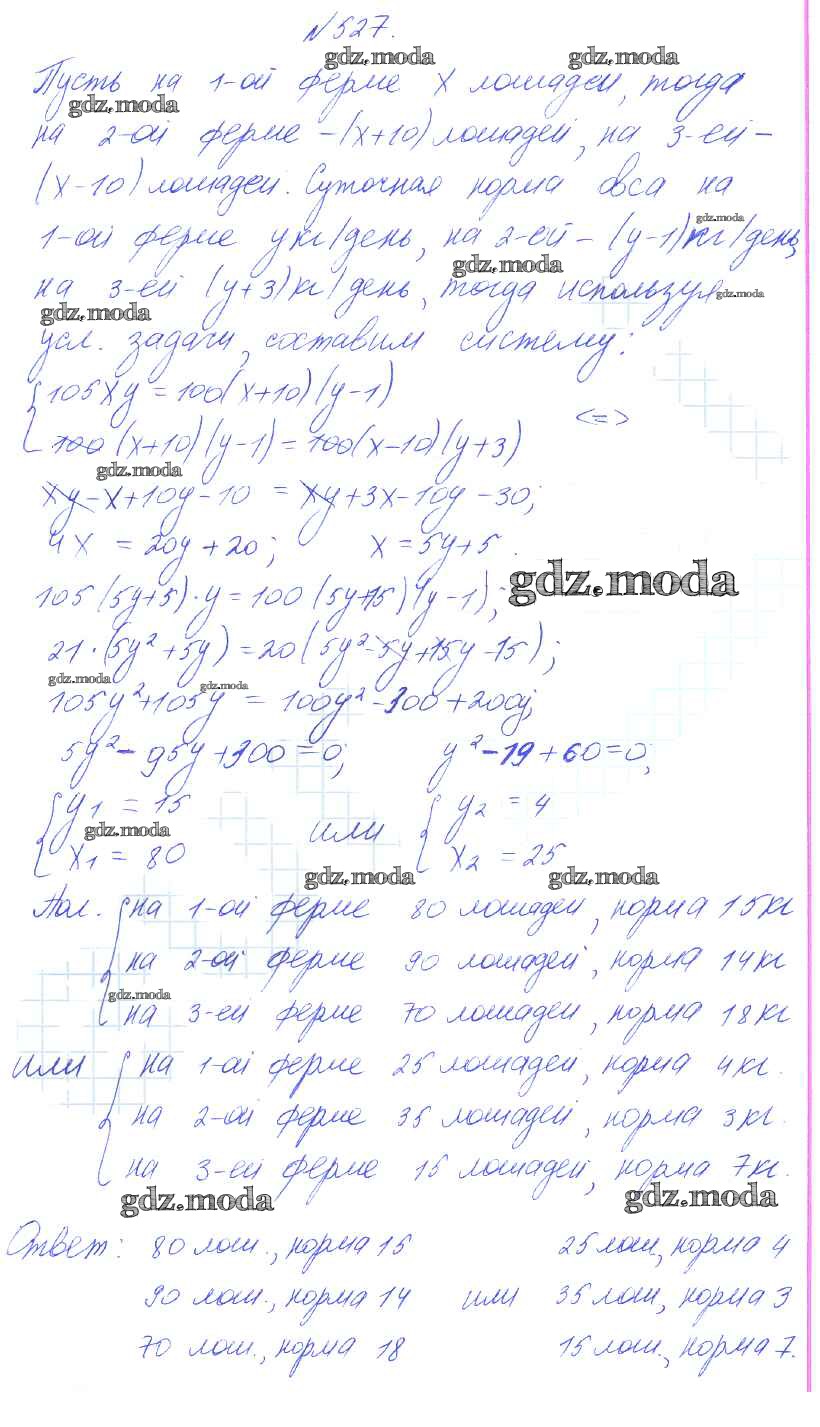 №527.
gdz.moda gdz.moda
Пусть на 1-ой ферме x лошадей, тогда
gdz.moda
на 2-ой ферме -(x+10) лошадей, на 3-ей -
(x-10) лошадей. Суточная норма овса на
gdz.moda
1-ой ферме y кг/день, на 2-ей - (y-1) кг/день,
gdz.moda
на 3-ей (y+3) кг/день, тогда используя
gdz.moda
gdz.moda
усл. задачи, составим систему:
105xy = 100(x+10)(y-1)
<=>
100(x+10)(y-1) = 100(x-10)(y+3)
gdz.moda
xy-x+10y-10 = xy+3x-10y-30;
4x = 20y+20; x=5y+5.
gdz.moda
105(5y+5)·y=100(5y+15)(y-1);
21·(5y²+5y)=20(5y²-5y+15y-15);
gdz.moda gdz.moda
105y²+105y = 100y²-300+200y;
5y²-95y+300=0; y²-19+60=0;
y₁ = 15 или y₂ = 4
gdz.moda
x₁ = 80 x₂ = 25
gdz.moda gdz.moda
Пол. на 1-ой ферме 80 лошадей, норма 15кг
на 2-ой ферме 90 лошадей, норма 14кг
gdz.moda
на 3-ей ферме 70 лошадей, норма 18кг
или на 1-ой ферме 25 лошадей, норма 4кг.
на 2-ой ферме 35 лошадей, норма 3кг.
на 3-ей ферме 15 лошадей, норма 7кг.
gdz.moda gdz.moda
Ответ: 80 лош., норма 15 25 лош, норма 4
90 лош., норма 14 или 35 лош, норма 3
70 лош., норма 18 15 лош., норма 7.